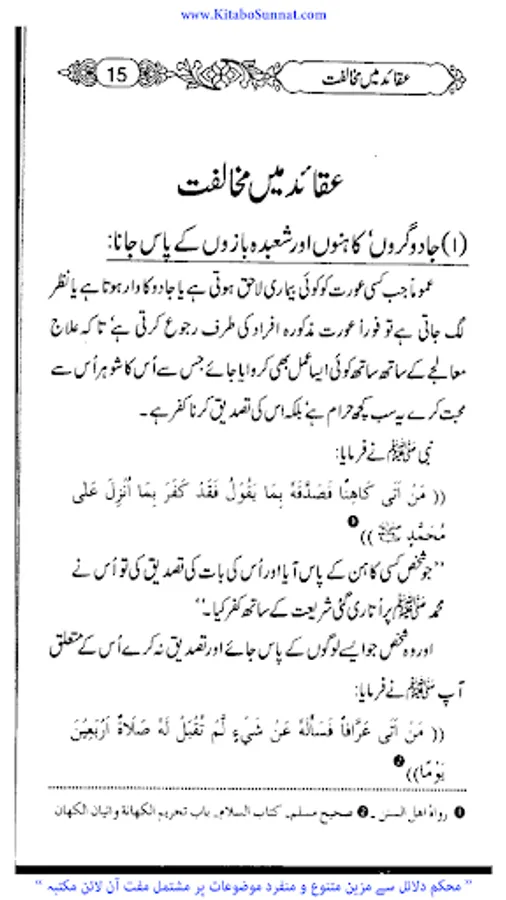 www.KitaboSunnat.com
15
عقائد میں مخالفت
عقائد میں مخالفت
(۱) جادوگروں‘ کاہنوں اور شعبدہ بازوں کے پاس جانا:
عموماً جب کسی عورت کو کوئی بیماری لاحق ہوتی ہے یا جادو کا وار ہوتا ہے یا نظر
لگ جاتی ہے تو فوراً عورت مذکورہ افراد کی طرف رجوع کرتی ہے‘ تاکہ علاج
معالجے کے ساتھ ساتھ کوئی ایسا عمل بھی کروایا جائے جس سے اُس کا شوہر اُس سے
محبت کرے یہ سب کچھ حرام ہے‘ بلکہ اس کی تصدیق کرنا کفر ہے۔
نبی ﷺ نے فرمایا:
(( مَنْ اَتَى كَاهِنًا فَصَدَّقَهُ بِمَا يَقُولُ فَقَدْ كَفَرَ بِمَا اُنْزِلَ عَلَى
مُحَمَّدٍ ﷺ )) ❶
’’جو شخص کسی کاہن کے پاس آیا اور اُس کی بات کی تصدیق کی تو اُس نے
محمد ﷺ پر اُتاری گئی شریعت کے ساتھ کفر کیا۔‘‘
اور وہ شخص جو ایسے لوگوں کے پاس جائے اور تصدیق نہ کرے اُس کے متعلق
آپ ﷺ نے فرمایا:
(( مَنْ اَتَى عَرَّافاً فَسَأَلَهُ عَنْ شَيْءٍ لَّمْ تُقْبَلْ لَهُ صَلَاةٌ اَرْبَعِيْنَ
يَوْمًا)) ❷
❶ رواہ اھل السنن ۔ ❷ صحیح مسلم۔ کتاب السلام۔ باب تحریم الکھانة و اتیان الکھان
’’محکم دلائل سے مزین متنوع و منفرد موضوعات پر مشتمل مفت آن لائن مکتبہ‘‘